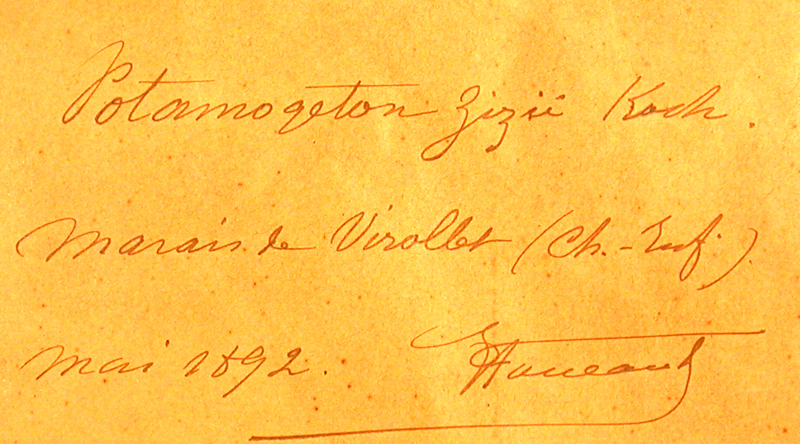 Potamogeton Zizii Koch.
Marais de Virollet (Ch.-Inf.)
Mai 1892. Foucaud